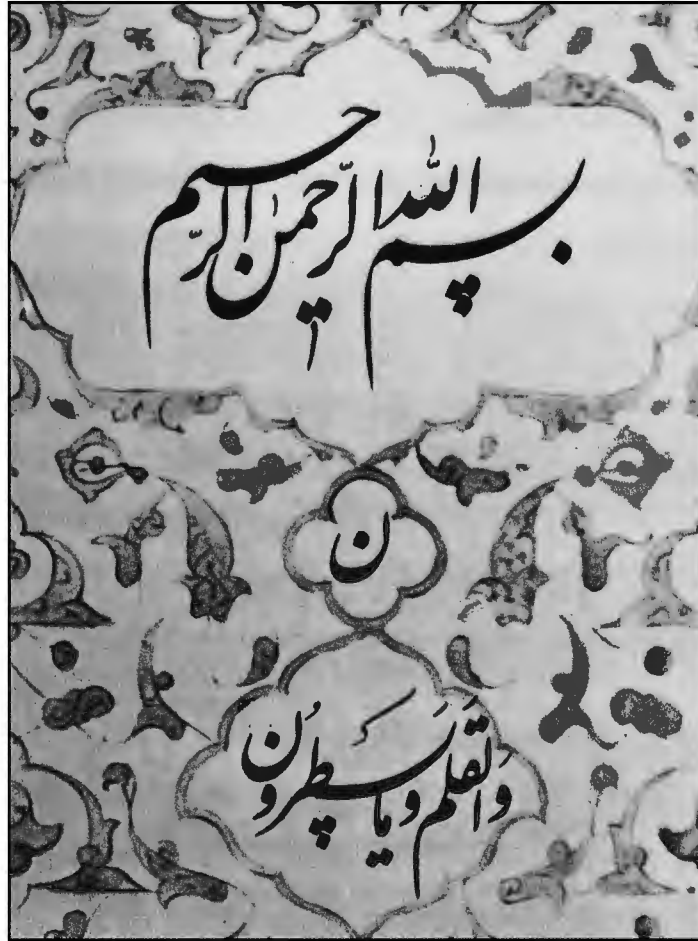 بسم الله الرَّحمٰن الرَّحیم
ن
وَالقَلَمِ وَمَا یَسطُرُونَ